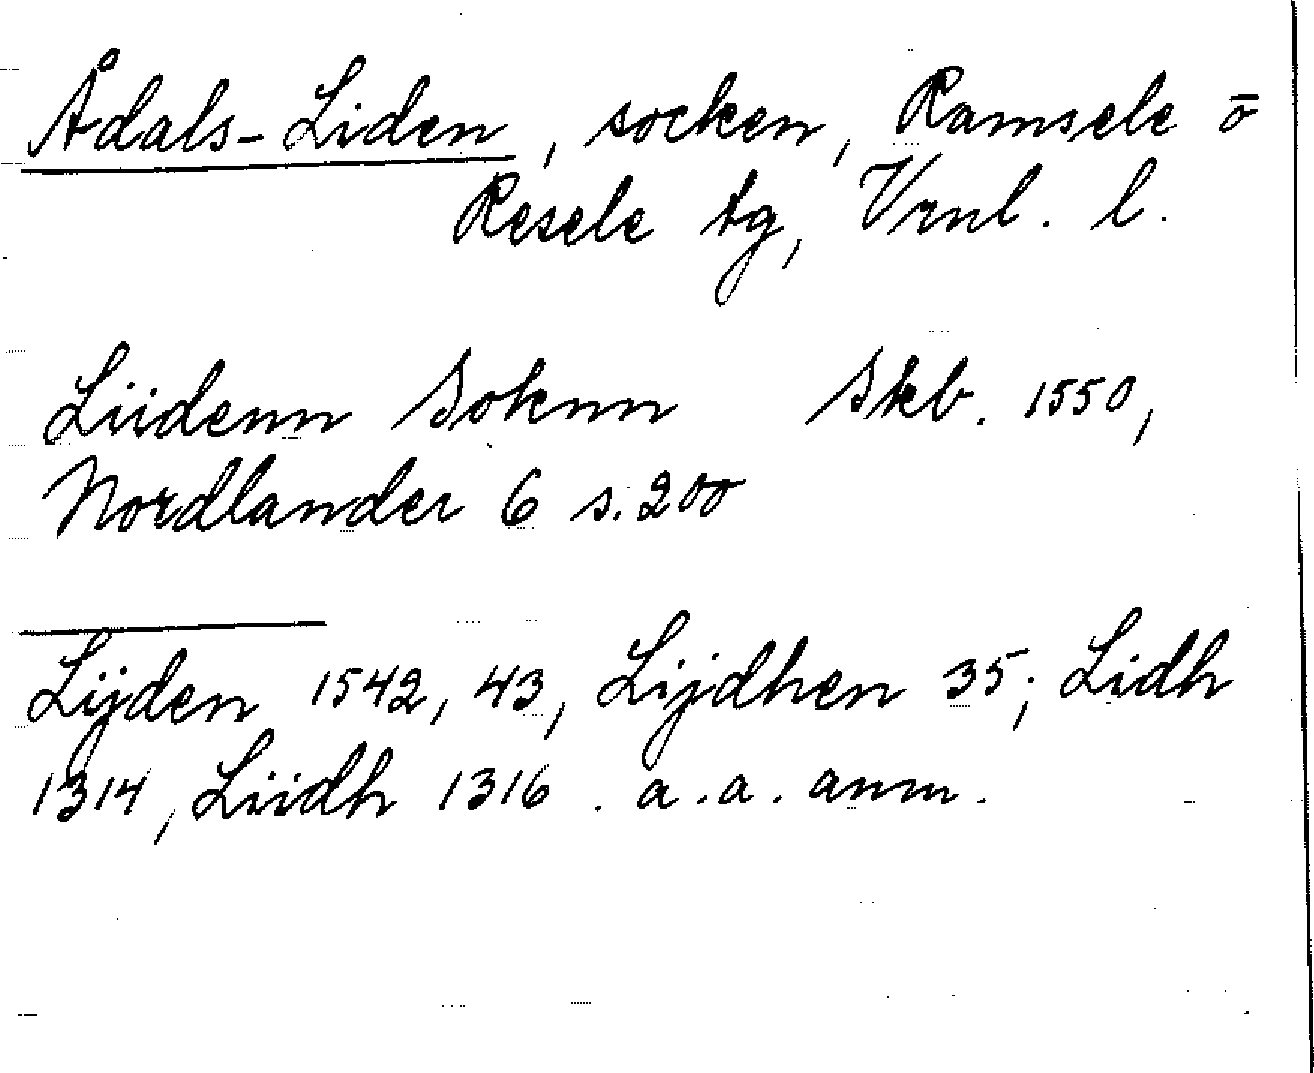 Ådals-Liden, socken, Ramsele o
Resele tg, Vrnl. l.
Liidenn Soknn Skb. 1550,
Nordlander 6 s. 200
Lijden 1542, 43, Lijdhen 35; Lidh
1314, Liidh 1316. a.a. anm.